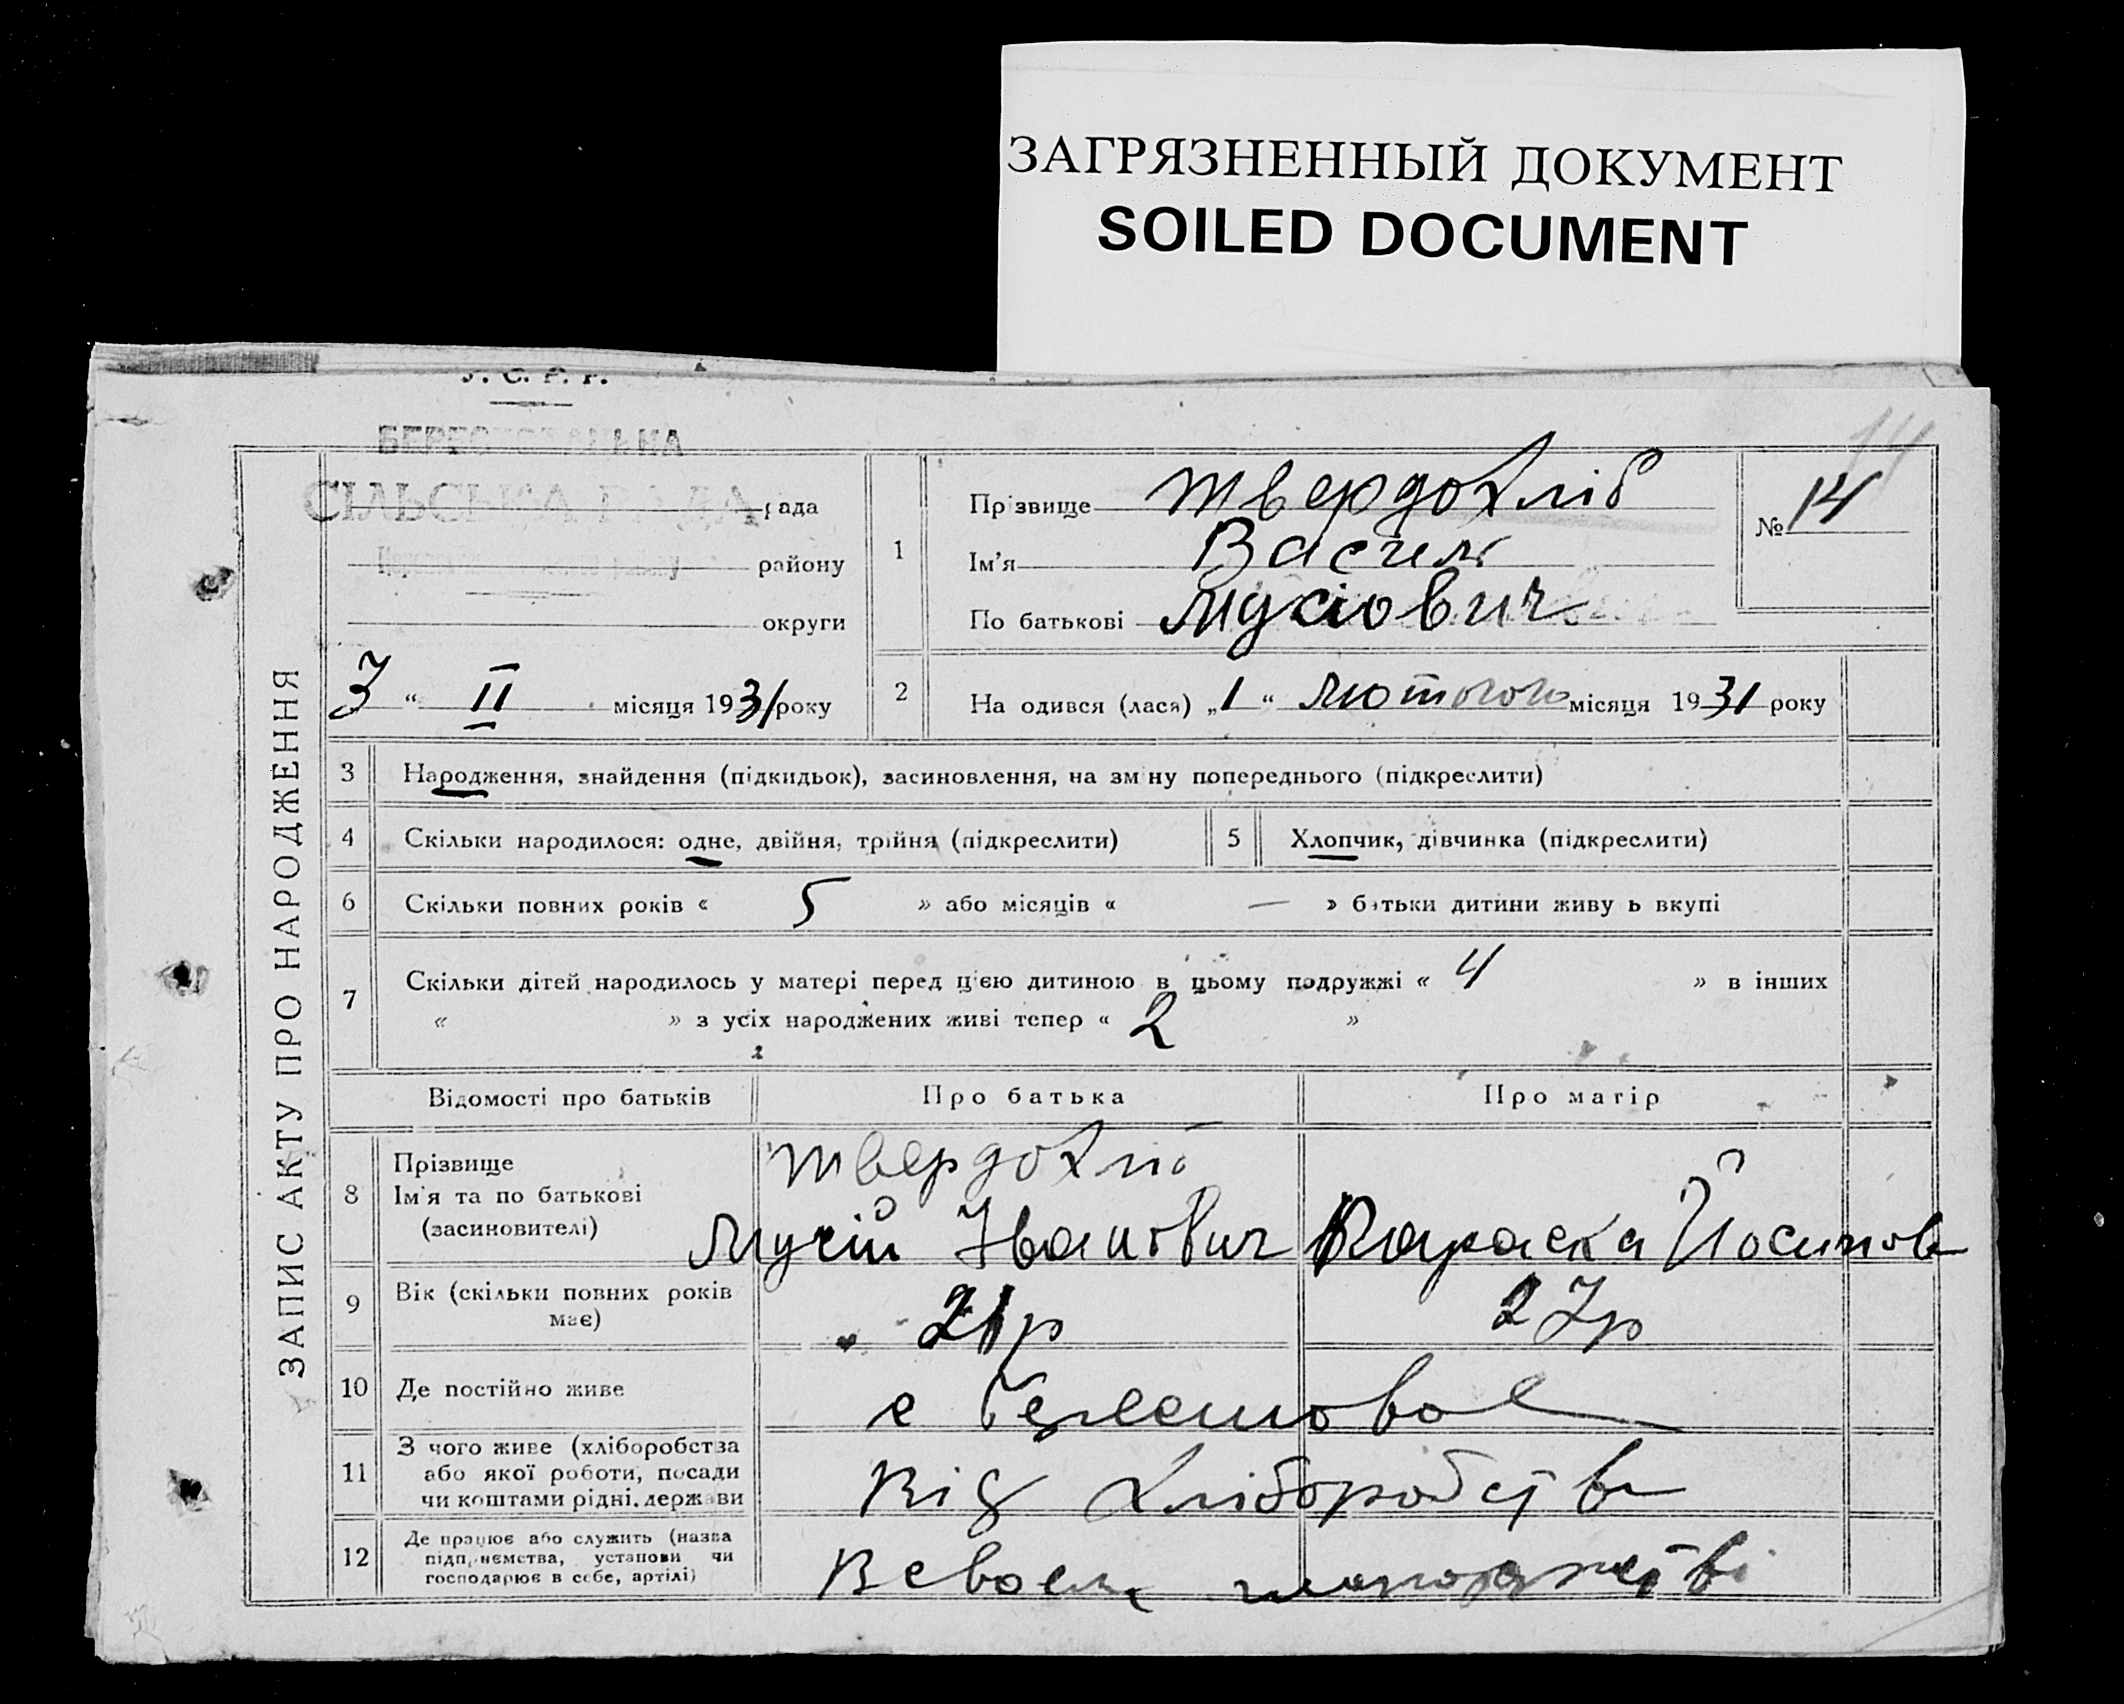 ЗАГРЯЗНЕННЫЙ ДОКУМЕНТ
SOILED DOCUMENT
У. С. Р. Р.
СІЛЬСЬКА РАДА рада
району
округи
3 “ II місяця 1931 року
ЗАПИС АКТУ ПРО НАРОДЖЕННЯ
1
Прізвище Твердохліб
Ім’я Василь
По батькові Мусіович
№ 14
2
На одився (лася) „1“ Лютого місяця 1931 року
3 Народження, знайдення (підкидьок), засиновлення, на зміну попереднього (підкреслити)
4 Скільки народилося: одне, двійня, трійня (підкреслити)
5 Хлопчик, дівчинка (підкреслити)
6 Скільки повних років « 5 » або місяців « — » батьки дитини живуть вкупі
7 Скільки дітей народилось у матері перед цією дитиною в цьому подружжі « 4 » в інших
« » з усіх народжених живі тепер « 2 »
Відомості про батьків Про батька Про матір
8 Прізвище
Ім’я та по батькові
(засиновителі)
Твердохліб
Мусій Іванович Параска Йосипов
9 Вік (скільки повних років
має)
27р
10 Де постійно живе
с
11 З чого живе (хліборобства
або якої роботи, посади
чи коштами рідні, держави
Від хліборобства
12 Де працює або служить (назва
підприємства, установи чи
господарює в себе, артілі)
В своєму